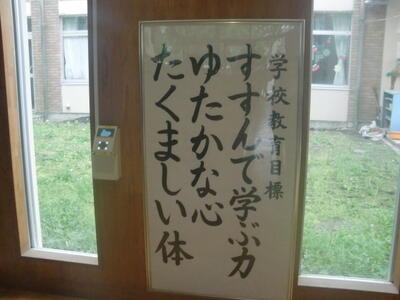 学校教育目標
すすんで学ぶ力
ゆたかな心
たくましい体